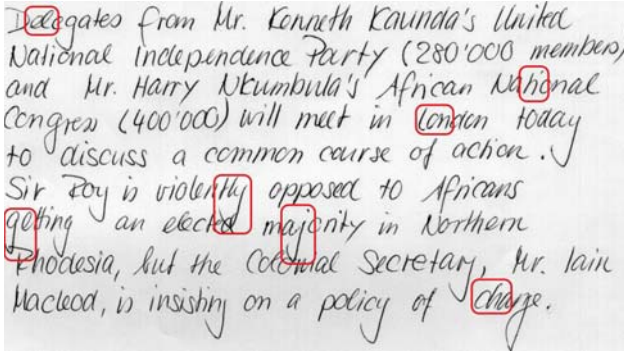 Delegates from Mr. Kenneth Kaunda's United
National Independence Party (280'000 members)
and Mr. Harry Nkumbula's African National
Congress (400'000) will meet in London today
to discuss a common course of action.
Sir Roy is violently opposed to Africans
getting an elected majority in Northern
Rhodesia, but the Colonial Secretary, Mr. Iain
Macleod, is insisting on a policy of change.